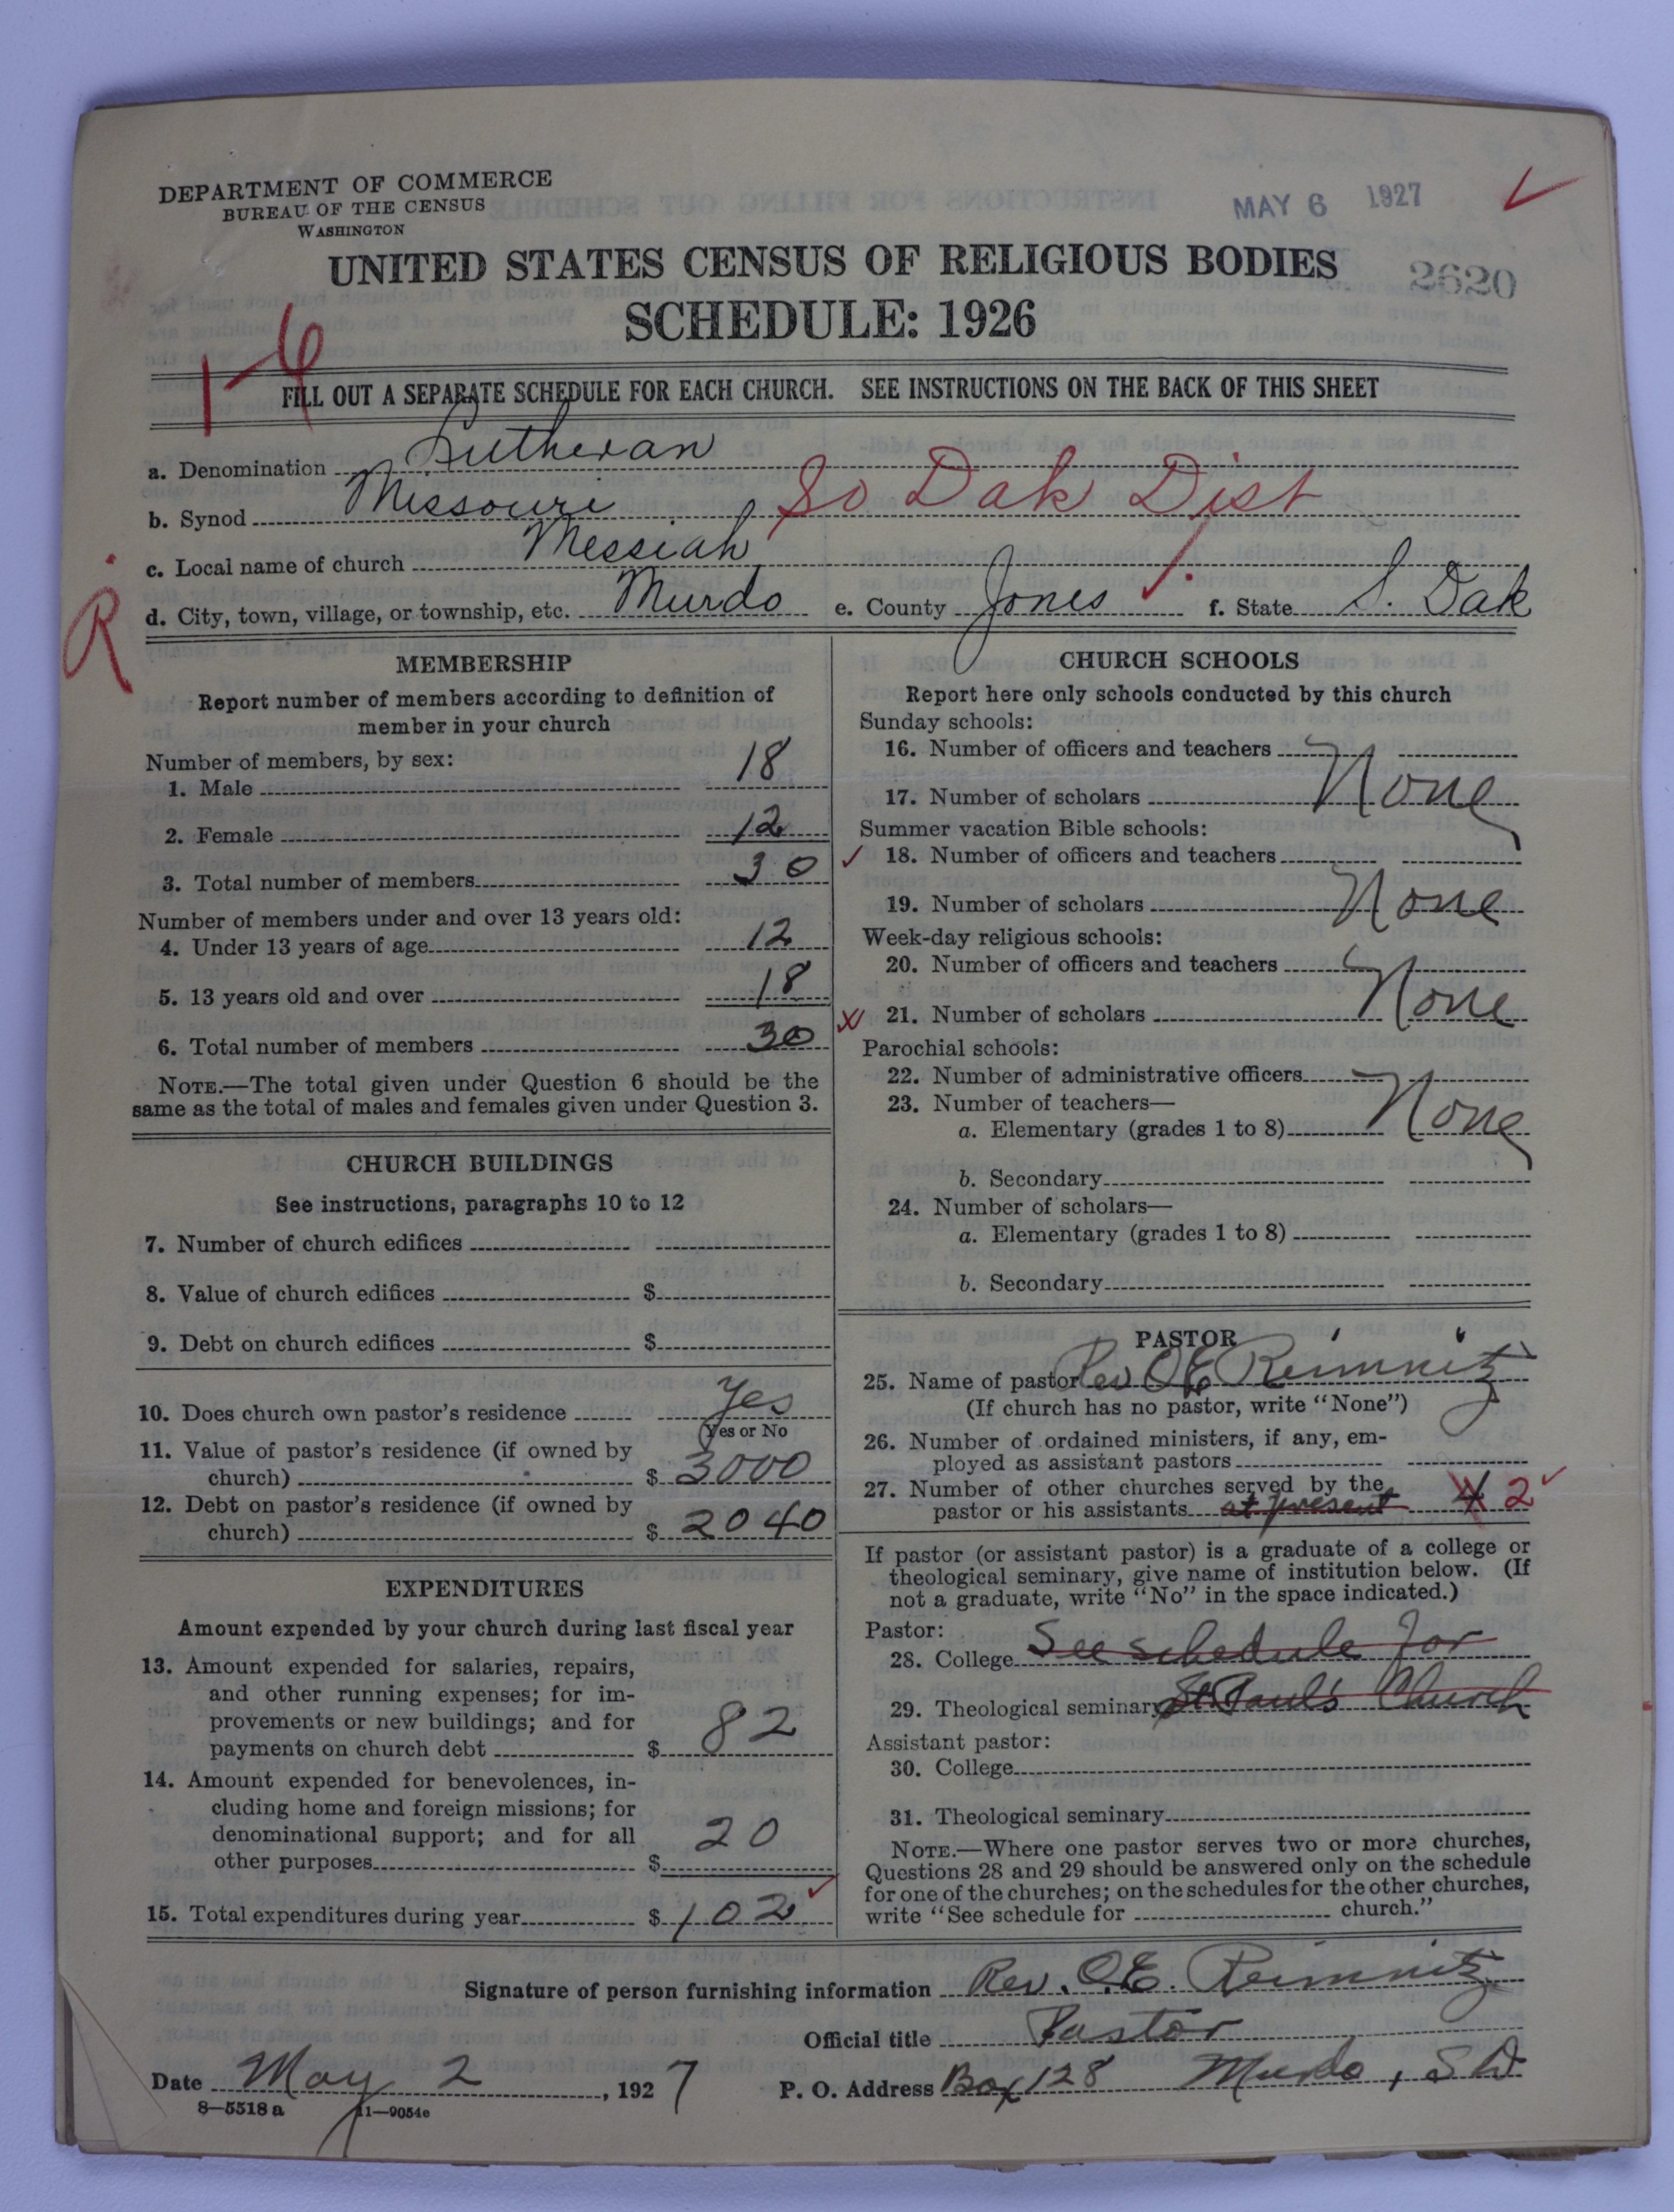 DEPARTMENT OF COMMERCE
BUREAU OF THE CENSUS
WASHINGTON
MAY 6 1927
UNITED STATES CENSUS OF RELIGIOUS BODIES
2620
SCHEDULE: 1926
1-6
FILL OUT A SEPARATE SCHEDULE FOR EACH CHURCH. SEE INSTRUCTIONS ON THE BACK OF THIS SHEET
a. Denomination Lutheran
b. Synod Missouri So Dak Dist
c. Local name of church Messiah
d. City, town, village, or township, etc. Murdo e. County Jones f. State S. Dak
R
MEMBERSHIP
Report number of members according to definition of
member in your church
Number of members, by sex:
1. Male 18
2. Female 12
3. Total number of members 30
Number of members under and over 13 years old:
4. Under 13 years of age 12
5. 13 years old and over 18
6. Total number of members 30
NOTE.—The total given under Question 6 should be the
same as the total of males and females given under Question 3.
CHURCH BUILDINGS
See instructions, paragraphs 10 to 12
7. Number of church edifices
8. Value of church edifices $
9. Debt on church edifices $
10. Does church own pastor's residence Yes
(Yes or No
11. Value of pastor's residence (if owned by
church) $ 3000
12. Debt on pastor's residence (if owned by
church) $ 2040
EXPENDITURES
Amount expended by your church during last fiscal year
13. Amount expended for salaries, repairs,
and other running expenses; for im-
provements or new buildings; and for
payments on church debt $ 82
14. Amount expended for benevolences, in-
cluding home and foreign missions; for
denominational support; and for all
other purposes $ 20
15. Total expenditures during year $ 102
CHURCH SCHOOLS
Report here only schools conducted by this church
Sunday schools:
16. Number of officers and teachers
17. Number of scholars None
Summer vacation Bible schools:
18. Number of officers and teachers
19. Number of scholars None
Week-day religious schools:
20. Number of officers and teachers
21. Number of scholars None
Parochial schools:
22. Number of administrative officers
23. Number of teachers—
a. Elementary (grades 1 to 8) None
b. Secondary
24. Number of scholars—
a. Elementary (grades 1 to 8)
b. Secondary
PASTOR
25. Name of pastor Rev OE Reimnitz
(If church has no pastor, write "None")
26. Number of ordained ministers, if any, em-
ployed as assistant pastors
27. Number of other churches served by the
pastor or his assistants at present 4 2
If pastor (or assistant pastor) is a graduate of a college or
theological seminary, give name of institution below. (If
not a graduate, write "No" in the space indicated.)
Pastor:
28. College See schedule for
29. Theological seminary St. Paul's Church
Assistant pastor:
30. College
31. Theological seminary
NOTE.—Where one pastor serves two or more churches,
Questions 28 and 29 should be answered only on the schedule
for one of the churches; on the schedules for the other churches,
write "See schedule for church."
Signature of person furnishing information Rev. O.E. Reimnitz
Official title Pastor
Date May 2, 1927 P. O. Address Box 128 Murdo, SD
8-5518 a 11-9054c